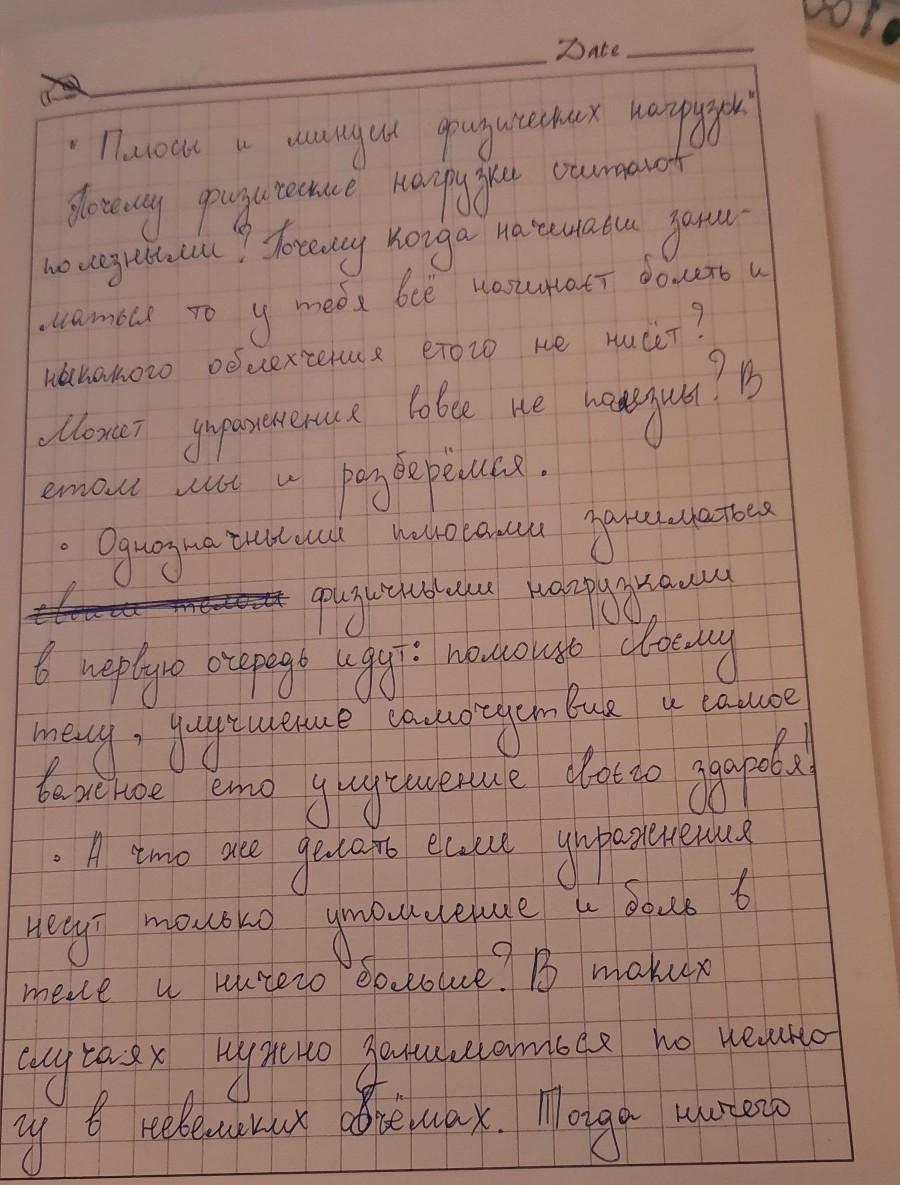 Date
"Плюсы и минусы физических нагрузок."
Почему физические нагрузки считают
полезными? Почему когда начинаеш зани-
маться то у тебя всё начинает болеть и
никакого облехчения етого не нисёт?
Может упражнения вовсе не полезны? В
етом мы и розберёмся.
• Однозначными плюсами заниматься
своим телом физичными нагрузками
в первую очередь идут: помощь своєму
телу, улучшение самочуствия и самое
важеное ето улучшение своєго здаровя!
• А что же делать если упражнения
несут только утомление и боль в
теле и ничего больше? В таких
случаях нужно заниматься по немно-
гу в невеликих обчёмах. Тогда ничего